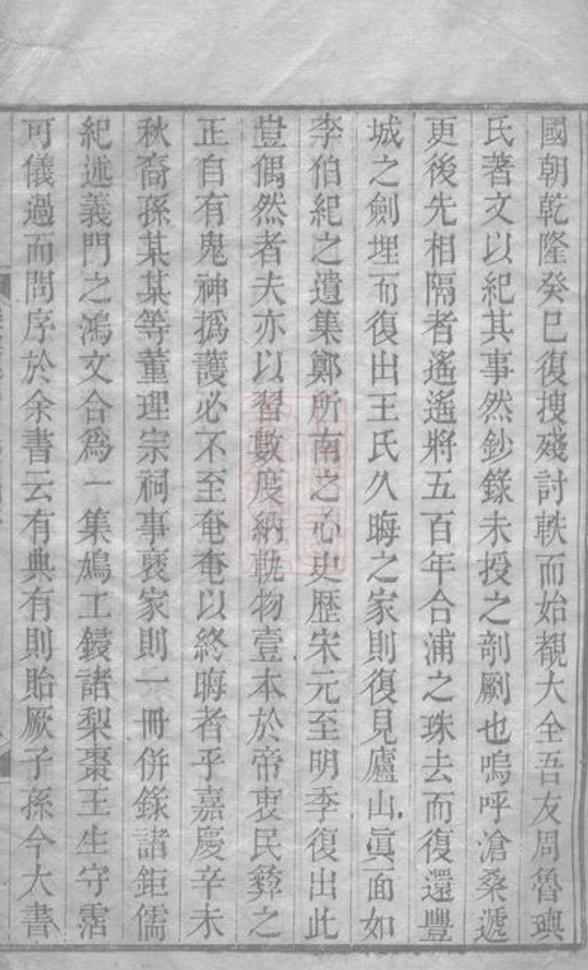 國朝乾隆癸巳復搜殘討軼而始覩大全吾友周魯璵
氏著文以紀其事然鈔錄未授之剞劂也嗚呼滄桑遞
更後先相隔者遙遙將五百年合浦之珠去而復還豐
城之劍埋而復出王氏久晦之家則復見廬山眞面如
李伯紀之遺集鄭所南之心史歷宋元至明季復出此
豈偶然者夫亦以習數度納軌物壹本於帝衷民彝之
正自有鬼神撝護必不至奄奄以終晦者乎嘉慶辛未
秋裔孫某某等董理宗祠事裒家則一冊併錄諸鉅儒
紀述義門之鴻文合爲一集鳩工鋟諸梨棗王生守霑
可儀過而問序於余書云有典有則貽厥子孫今大書